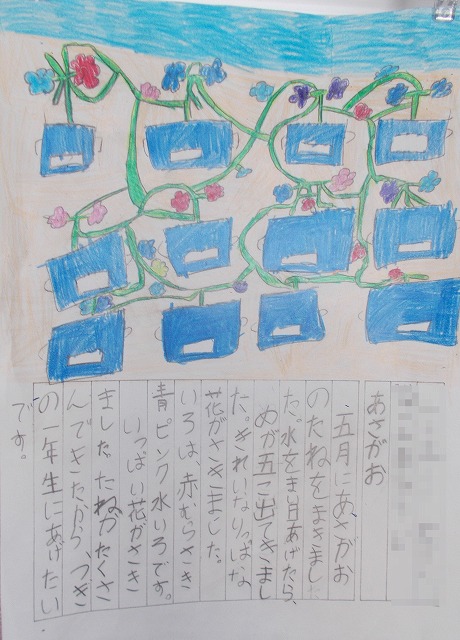 あさがお
五月にあさがお
のたねをまきまし
た。水をまい日あげたら、
めが五こ出てきまし
た。きれいなりっぱな
花がさきました。
いろは、赤むらさき
青ピンク水いろです。
いっぱい花がさき
ました。たねがたくさ
んできたから、つぎ
の一年生にあげたい
です。